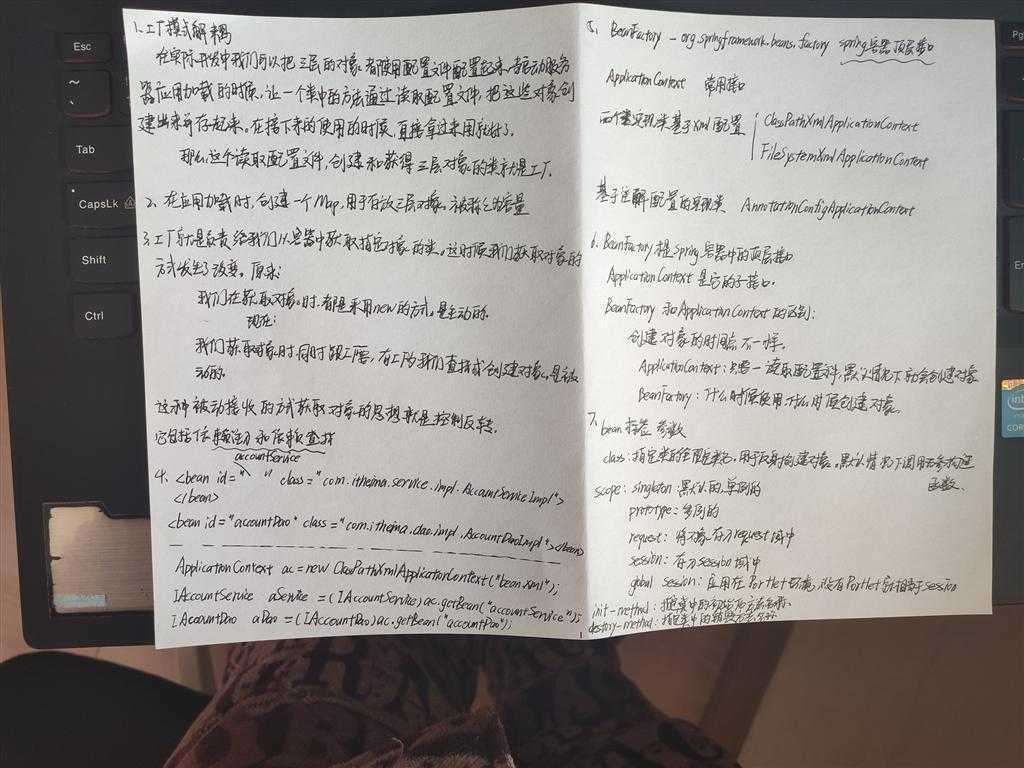 Esc
~
Tab
CapsLk
Shift
Ctrl
1. 工厂模式解耦
在实际开发中我们可以把三层的对象都使用配置文件配置起来,当启动服务
器应用加载的时候,让一个类中的方法通过读取配置文件,把这些对象创
建出来并存起来。在接下来的使用的时候,直接拿过来用就好了。
那么,这个读取配置文件,创建和获得三层对象的类就是工厂。
2、在应用加载时,创建一个Map,用于存放三层对象。被称之为容量
3. 工厂就是负责给我们从容器中获取指定对象的类。这时候我们获取对象的
方式发生了改变。原来:
我们在获取对象时,都是采用new的方式。是主动的。
现在:
我们获取对象时,同时跟工厂要,有工厂为我们查找或创建对象。是被
动的。
这种被动接收的方式获取对象的思想就是控制反转。
它包括依赖注入和依赖查找
accountService
4. <bean id=" " class="com.itheima.service.impl.AccountServiceImpl">
</bean>
<bean id="accountDao" class="com.itheima.dao.impl.AccountDaoImpl"></bean>
ApplicationContext ac=new ClassPathXmlApplicationContext("bean.xml");
IAccountService aService =(IAccountService)ac.getBean("accountService");
IAccountDao aDao =(IAccountDao)ac.getBean("accountDao");
5. BeanFactory - org.springframework.beans.factory spring容器顶层接口
ApplicationContext 常用接口
两个重要实现类基于Xml配置 ClassPathXmlApplicationContext
FileSystemXmlApplicationContext
基于注解配置的实现类 AnnotationConfigApplicationContext
6. BeanFactory 才是spring容器中的顶层接口
ApplicationContext 是它的子接口.
BeanFactory 和ApplicationContext的区别:
创建对象的时间点不一样。
ApplicationContext:只要一读取配置文件,默认情况下就会创建对象
BeanFactory:什么时候使用什么时候创建对象。
7. bean 标签 参数
class:指定类的全限定类名,用于反射创建对象。默认情况下调用无参构造
函数。
scope:singleton 默认的,单例的
prototype:多例的
request:将对象存入request域中
session:存入session域中
global session:应用在Portlet环境,没有Portlet就相当于Session
init-method:指定类中的初始化方法名称
destory-method:指定类中的销毁方法名称
intel